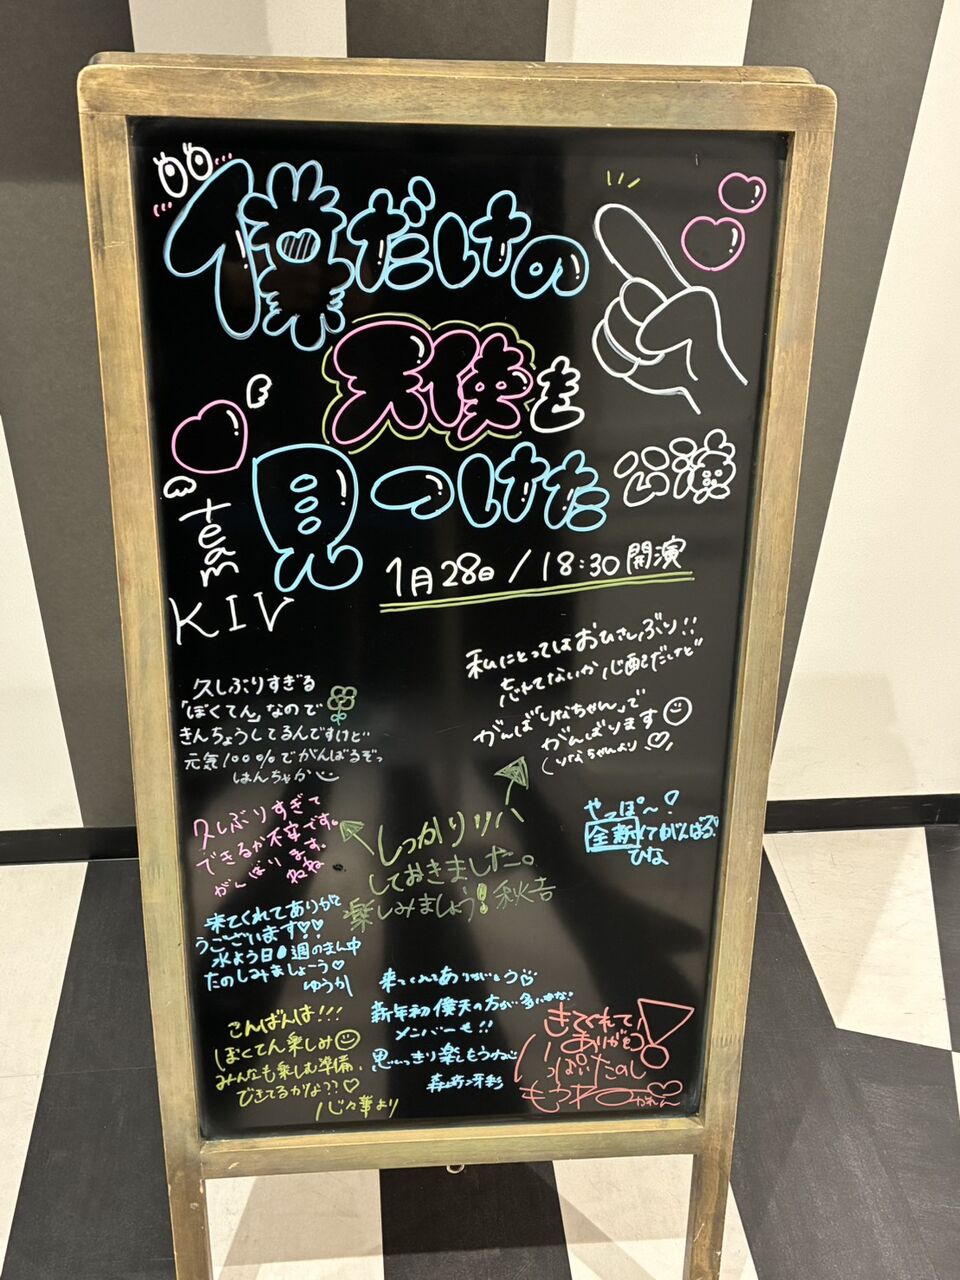 僕だけの
天使を
見つけた 公演
team
KIV
1月28日/18:30開演
私にとってはおひさしぶり!!
忘れてないか心配だけど
がんば「りなちゃん」で
がんばります
(りなちゃんより
久しぶりすぎる
「ぼくてん」なので
きんちょうしてるんですけど
元気100%でがんばるぞっ
はんちゃか
久しぶりすぎて
できるか不安です。
がんばります。
ねね
しっかりリハ
しておきました。
楽しみましょう! 秋吉
やっぽ〜♪
全新〆でがんばる
ひな
来てくれてありがと
うございます♡♡
水よう日!週のまん中
たのしみましょーう♡
ゆうか
来てくれてありがとう
新年初僕天の方が多いかな?
メンバーも!!
思いっきり楽しもうね
こんばんは!!!
ぼくてん楽しみ
みんなも楽しむ準備、
できてるかな??♡
心々華より
きてくれて
ありがとう
いっぱいたのし
もうね
かれん